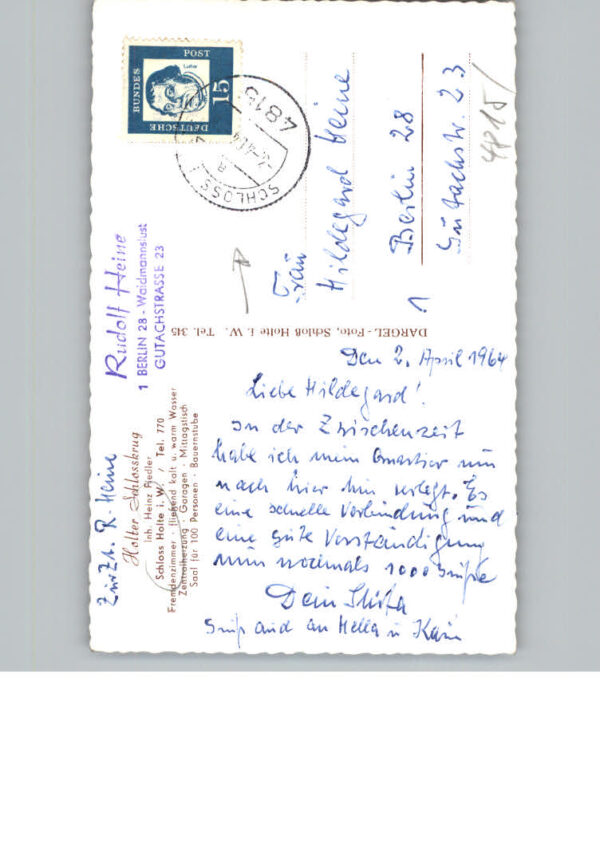 Zur Zt. R. Heine
Holter Schlosskrug
Inh. Heinz Fiedler
Schloss Holte i. W. / Tel. 770
Fremdenzimmer · fließend kalt u. warm Wasser
Zentralheizung · Garagen · Mittagstisch
Saal für 100 Personen · Bauernstube
Rudolf Heine
1 BERLIN 28 - Waidmannslust
GUTACHSTRASSE 23
Den 2. April 1964
Liebe Hildegard!
in der Zwischenzeit
habe ich mein Quartier nun
nach hier hin verlegt. Es
eine schnelle Verbindung und
eine gute Verständigung
nun nochmals 1000 Grüße
Dein
Gruß auch an Hella u Karin
DARGEL-Foto, Schloß Holte i. W. Tel. 345
DEUTSCHE
BUNDES
POST
15
Luther
4815
SCHLOSS
Frau
Hildegard Heine
1 Berlin 28
Gutachstr. 23
4815/